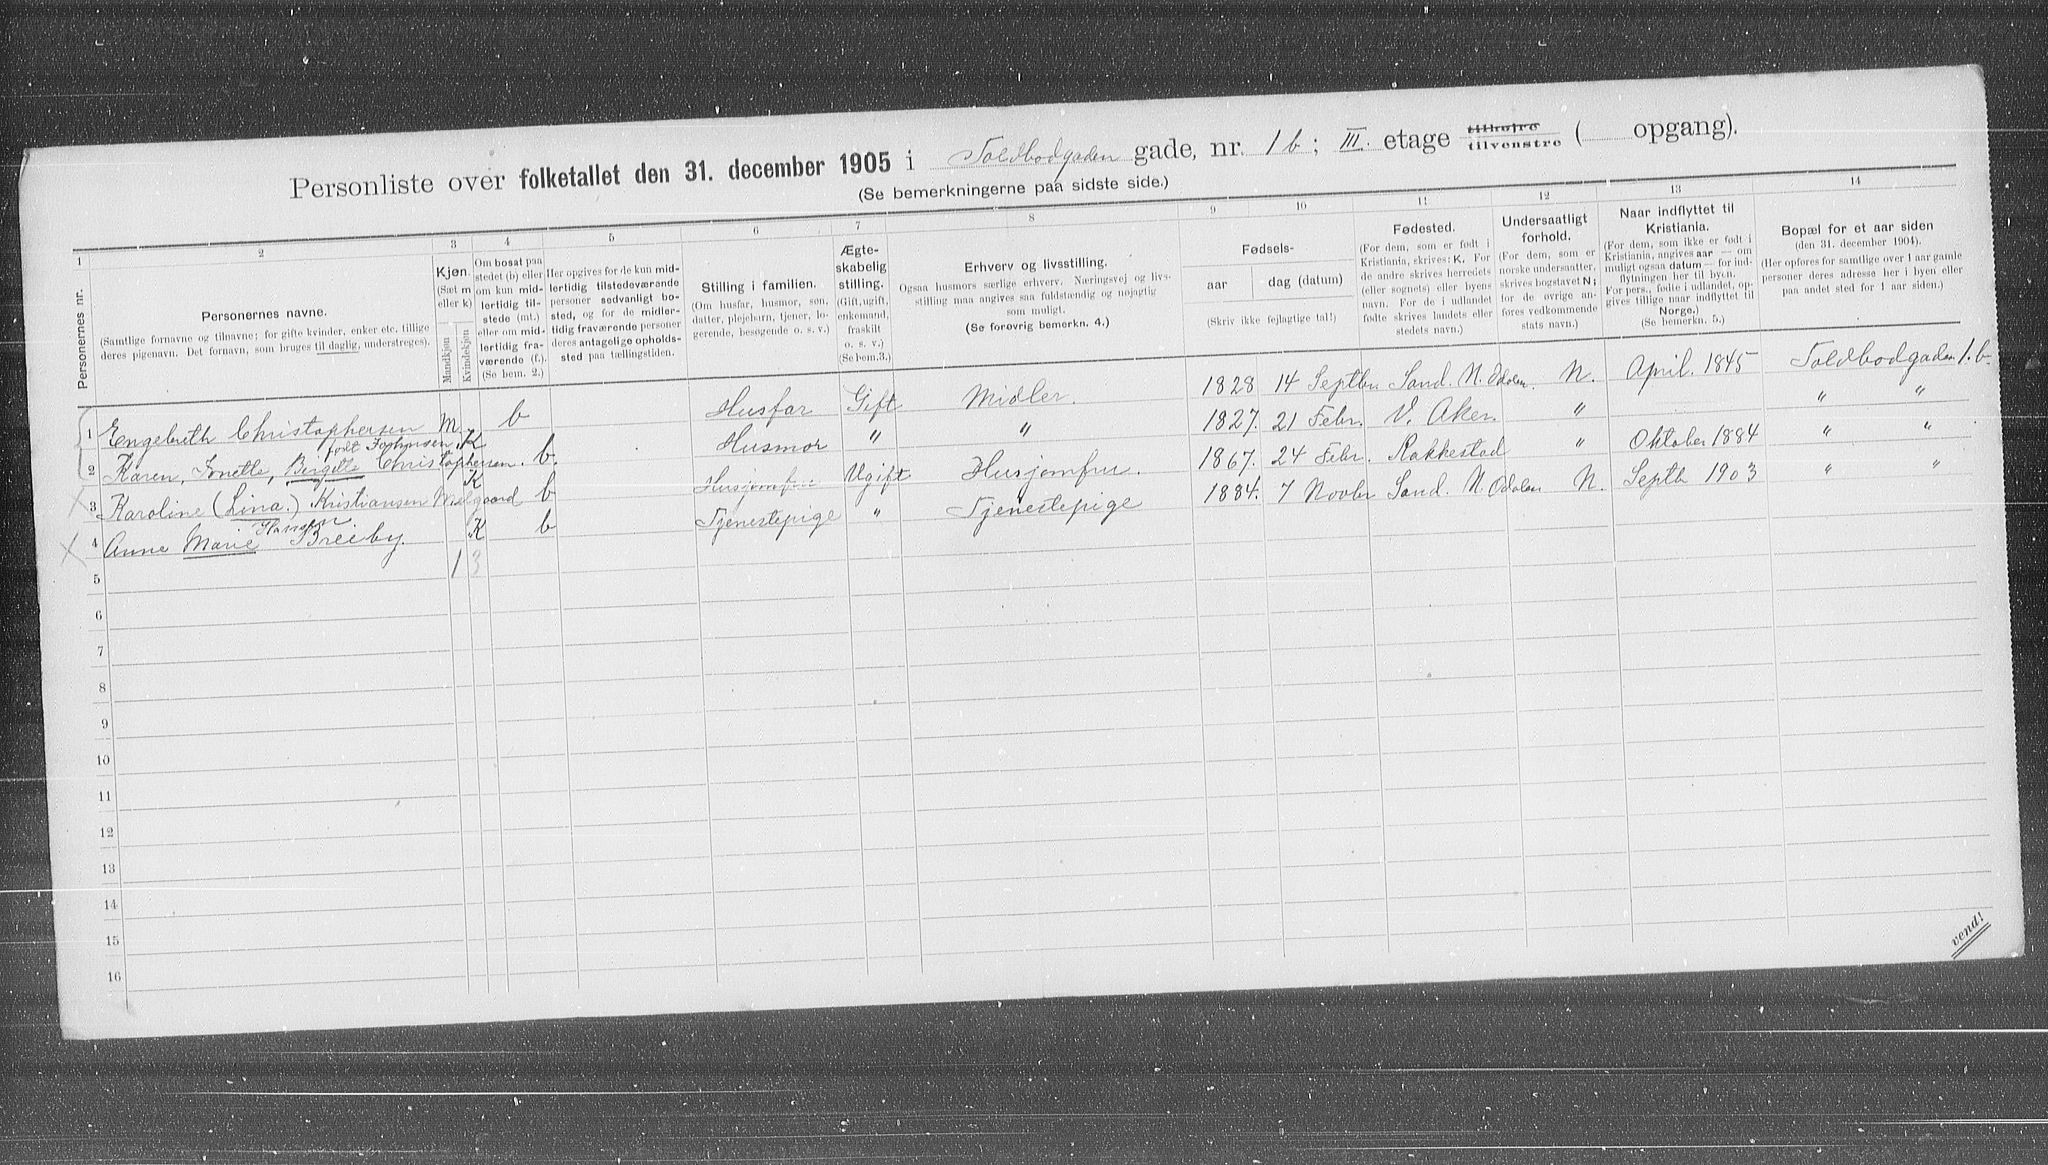 Personliste over folketallet den 31. december 1905 i Toldbodgaden gade, nr. 1 b; III. etage tilhøjre tilvenstre ( opgang).
(Se bemerkningerne paa sidste side.)
1 2 3 4 5 6 7 8 9 10 11 12 13 14
Personernes nr.
Personernes navne.
(Samtlige fornavne og tilnavne; for gifte kvinder, enker etc. tillige
deres pigenavn. Det fornavn, som bruges til daglig, understreges).
Kjøn.
(Sæt m
eller k)
Mandkjøn
Kvindekjøn
Om bosat paa
stedet (b) eller
om kun mid-
lertidig til-
stede (mt.)
eller om mid-
lertidig fra-
værende (f.).
(Se bem. 2.)
Her opgives for de kun mid-
lertidig tilstedeværende
personer sedvanligt bo-
sted, og for de midler-
tidig fraværende personer
deres antagelige opholds-
sted paa tællingstiden.
Stilling i familien.
(Om husfar, husmor, søn,
datter, plejebarn, tjener, lo-
gerende, besøgende o. s. v.)
Ægte-
skabelig
stilling.
(Gift, ugift,
enkemand,
fraskilt
o. s. v.)
(Se bem.3.)
Erhverv og livsstilling.
Ogsaa husmors særlige erhverv. Næringsvej og livs-
stilling maa angives saa fuldstændig og nøjagtig
som muligt.
(Se forøvrig bemerkn. 4.)
Fødsels-
aar dag (datum)
(Skriv ikke fejlagtige tal!)
Fødested.
(For dem, som er født i
Kristiania, skrives: K. For
de andre skrives herredets
(eller sognets) eller byens
navn. For de i udlandet
fødte skrives landets eller
stedets navn.)
Undersaatligt
forhold.
(For dem, som er
norske undersaatter,
skrives bogstavet N;
for de øvrige an-
føres vedkommende
stats navn.)
Naar indflyttet til
Kristiania.
(For dem, som ikke er født i
Kristiania, angives aar — om
muligt ogsaa datum — for ind-
flytningen her til byen.
For pers., fødte i udlandet, op-
gives tillige naar indflyttet til
Norge.)
(Se bemerkn. 5.)
Bopæl for et aar siden
(den 31. december 1904).
(Her opføres for samtlige over 1 aar gamle
personer deres adresse her i byen eller
paa andet sted for 1 aar siden.)
1 Engebreth Christophersen M. b Husfar Gift Midler. 1828 14 Septbr Sand. N. Odalen. N. April. 1845 Toldbodgaden 1. b
født
2 Karen, Birgitte Christophersen. K b. Husmor " " 1827. 21 Febr. V. Aker. " " "
3 Karoline (Lina.) Kristiansen K b Husjomfru Ugift Husjomfru. 1867. 24 Febr. Rakkestad " Oktober 1884 " "
Hansen
4 Anne Marie Breeby. K b Tjenestepige " Tjenestepige 1884. 7 Novbr Sand. N. Odalen N. Septb 1903 " "
5 1 3
6
7
8
9
10
11
12
13
14
15
16
vend!